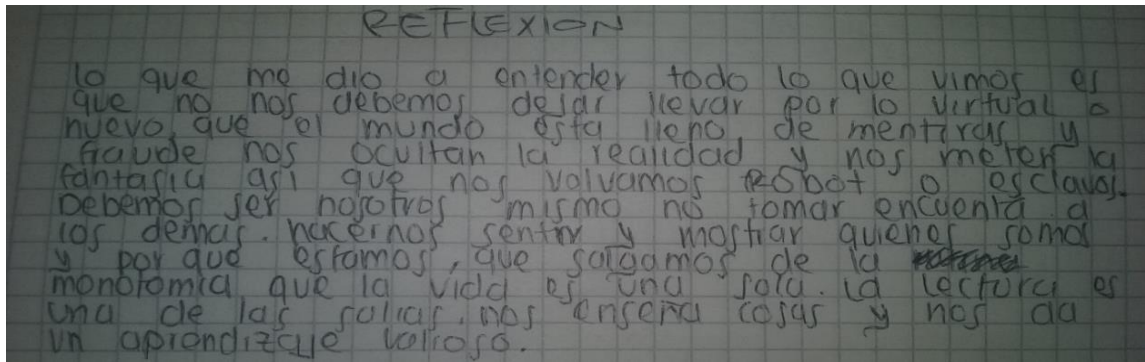 REFLEXION
lo que me dio a entender todo lo que vimos es
que no nos debemos dejar llevar por lo virtual o
nuevo, que el mundo esta lleno de mentiras y
fraude nos ocultan la realidad y nos meten la
fantasia asi que nos volvamos Robot o esclavos.
Debemos ser nosotros mismo no tomar encuenta a
los demas. hacernos sentir y mostrar quienes somos
y por que estamos, que salgamos de la
monotomia que la vida es una sola. la lectora es
una de las salias. nos enseña cosas y nos da
un aprendizaje valioso.